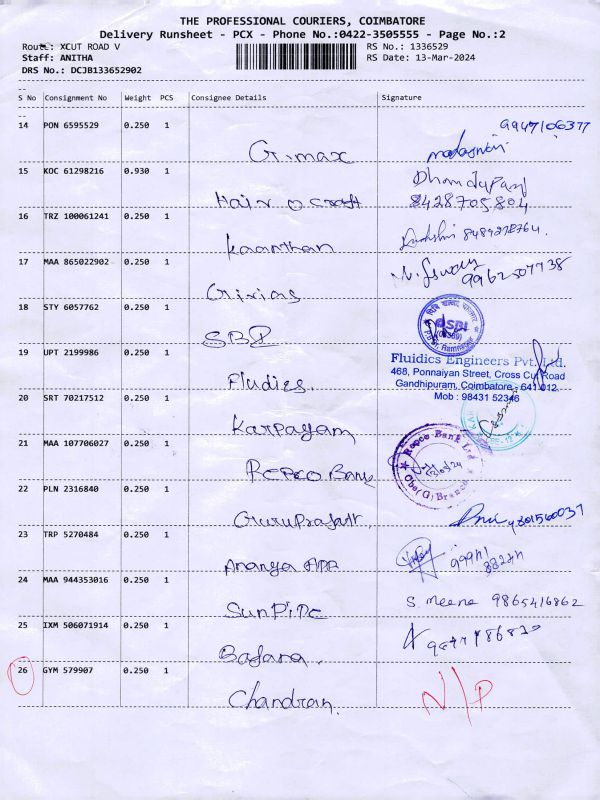 THE PROFESSIONAL COURIERS, COIMBATORE
Delivery Runsheet - PCX - Phone No.:0422-3505555 - Page No.:2
Route: XCUT ROAD V
RS No.: 1336529
Staff: ANITHA
RS Date: 13-Mar-2024
DRS No.: DCJB133652902
S No Consignment No Weight PCS Consignee Details Signature
14 PON 6595529 0.250 1
9947106377
G.max
15 KOC 61298216 0.930 1
Hair o craft
8428705804
16 TRZ 100061241 0.250 1
Kaanthan
17 MAA 865022902 0.250 1
9962507738
Girias
18 STY 6057762 0.250 1
SBI
19 UPT 2199986 0.250 1
Fludies.
Fluidics Engineers Pvt. Ltd.
468, Ponnaiyan Street, Cross Cut Road
Gandhipuram, Coimbatore - 641 012.
Mob : 98431 52346
20 SRT 70217512 0.250 1
Karpagam
21 MAA 107706027 0.250 1
Repco Bank
Repco Bank Ltd
Cbe(G) Branch
22 PLN 2316840 0.250 1
Guruprasath,
23 TRP 5270484 0.250 1
Ananya APP
24 MAA 944353016 0.250 1
SunPipe
S. Meena 9865416862
25 IXM 506071914 0.250 1
26 GYM 579907 0.250 1
Chandran.
N/P